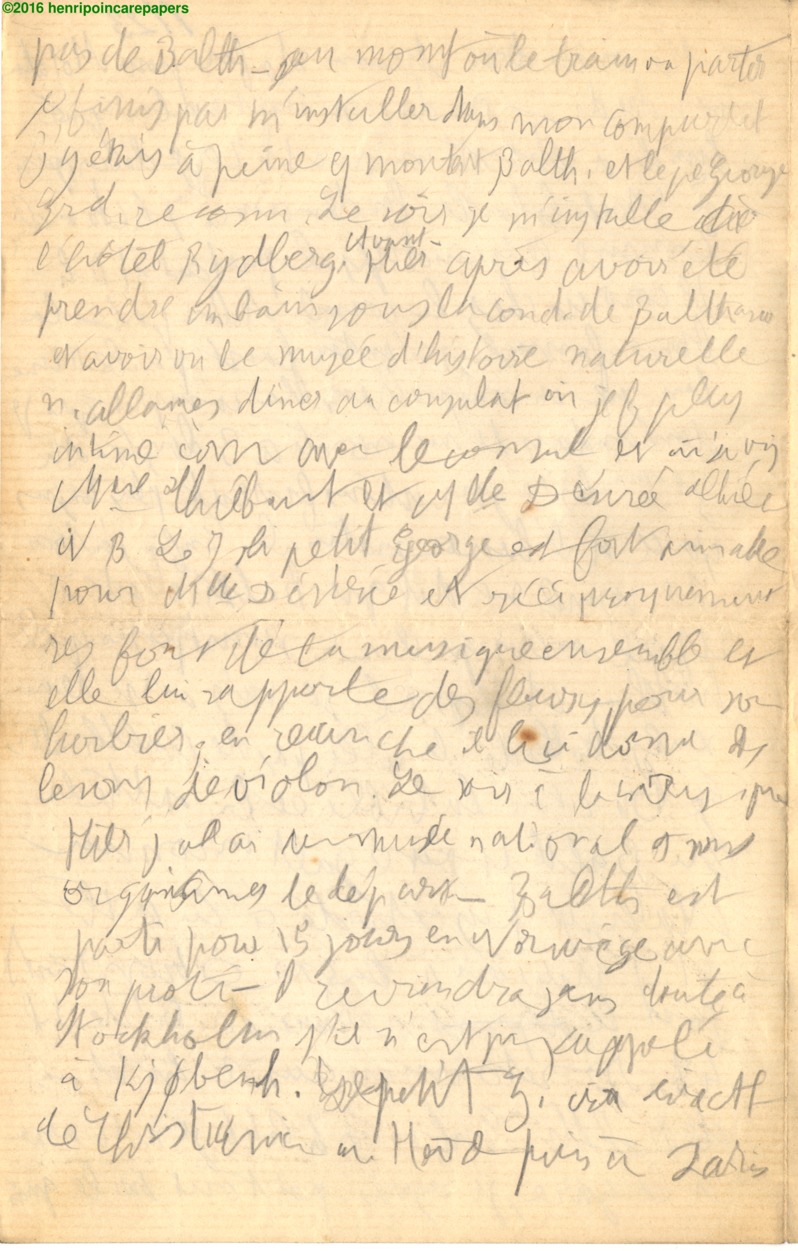 ©2016 henripoincarepapers
pas de Balth – au momt où le train va partir
je finis par m'installer dans mon compartet
j'y étais à peine q montnt Balth. et le pe George
Grd. reconn. Le soir je m'installe
l'hôtel Rydberg. Avant Hier après avoir été
prendre un bain sous la cond. de Balthazar
et avoir vu le musée d'histoire naturelle
n. allames diner au consulat où je fs plus
intime conn avec le consul et où je vis
Mme Thiébaut et Mlle Désirée
N B Le J. h petit George est fort aimable
pour Mlle Désirée et réciproquement
ils font de la musique ensemble et
elle lui rapporte des fleurs pour son
herbier, en revanche il lui donne des
leçons de violon. Le soir à
Hier j'allai au musée national et nous
organisâmes le départ – Balth est
parti pour 15 jours en Norwège avec
son prot. – il reviendra sans doute à
Stockholm s'il n'est pas rappelé
à Kjøbenh. Le petit G. va
de Christiania au Hâvre puis à Paris